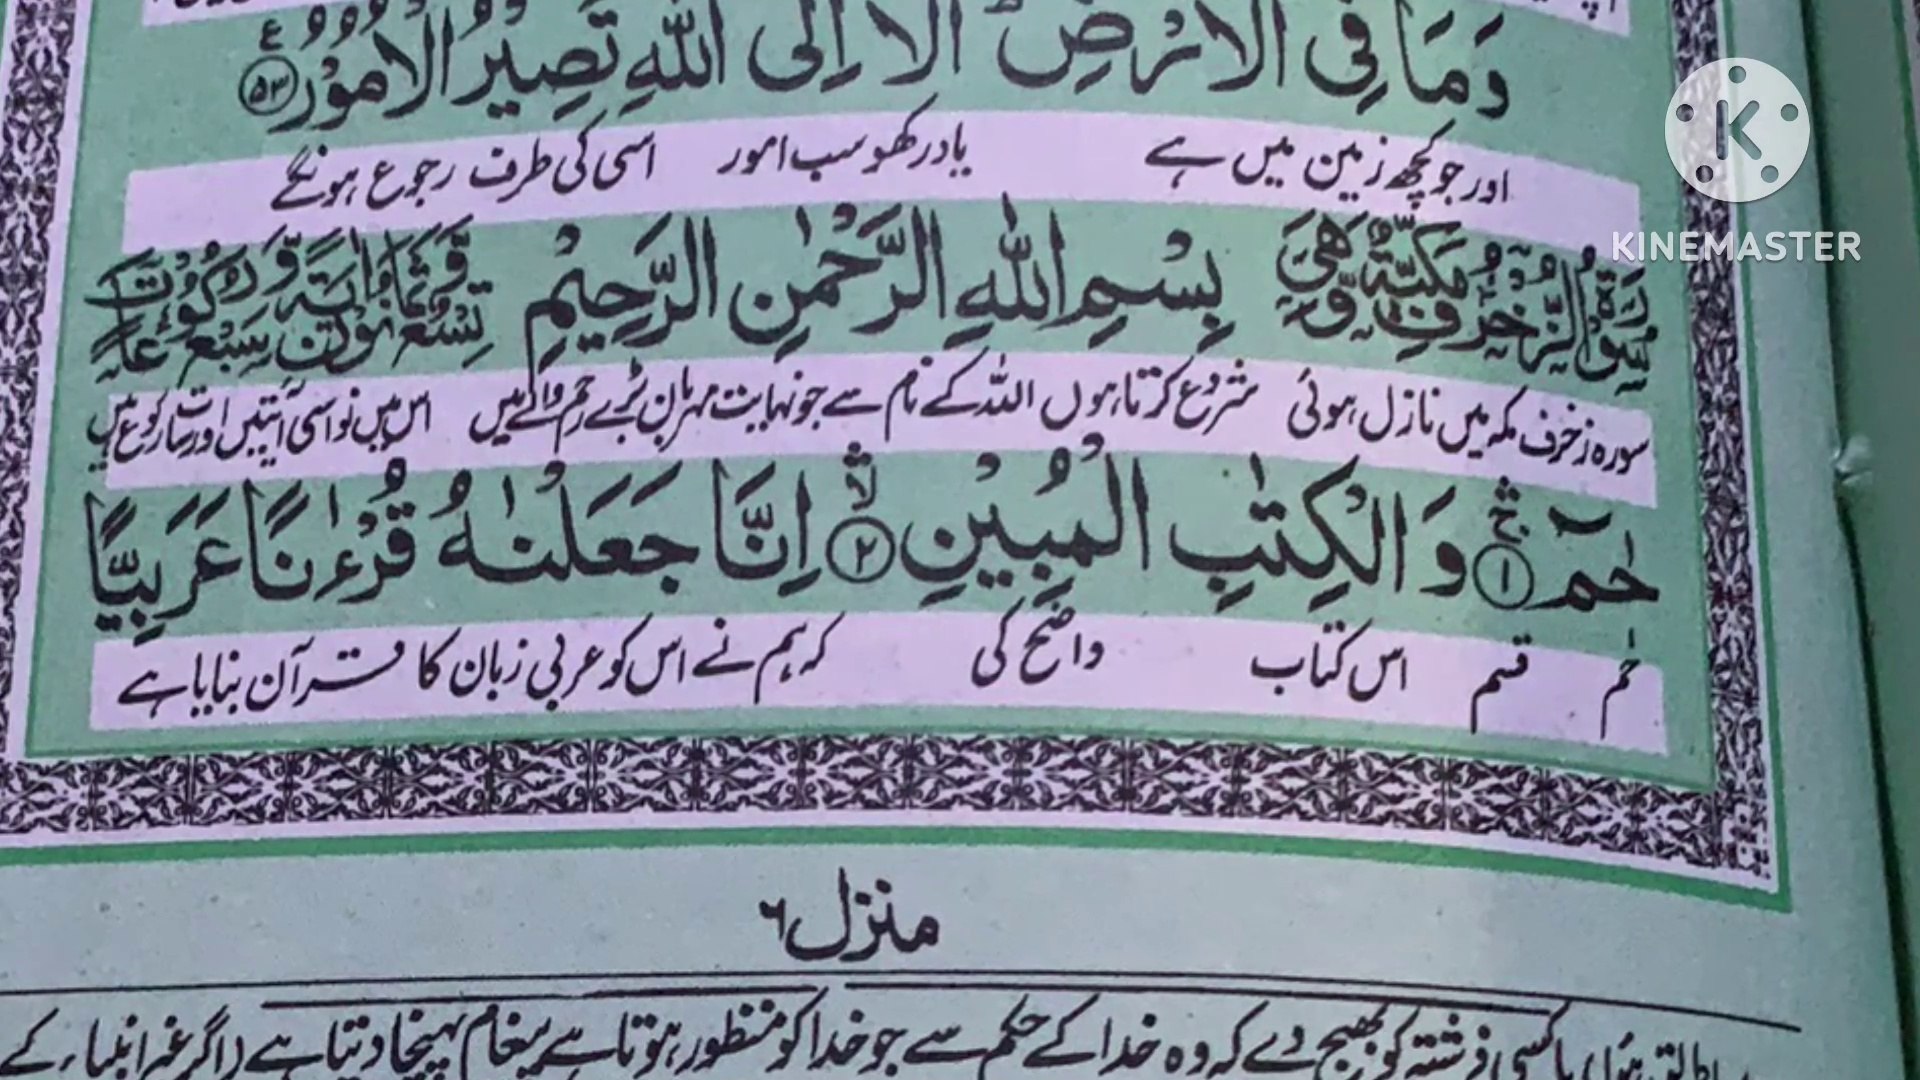 وَمَا فِی الْاَرْضِ ؕ اَلَاۤ اِلَی اللّٰهِ تَصِیْرُ الْاُمُوْرُ ۵۳ ع
اور جو کچھ زمین میں ہے یاد رکھو سب امور اسی کی طرف رجوع ہونگے
سُوْرَةُ الزُّخْرُفِ مَكِّیَّةٌ وَّهِیَ بِسْمِ اللّٰهِ الرَّحْمٰنِ الرَّحِیْمِ تِسْعٌ وَّثَمَانُوْنَ اٰیَةً وَّسَبْعُ رُكُوْعَاتٍ
سورہ زخرف مکہ میں نازل ہوئی شروع کرتا ہوں اللہ کے نام سے جو نہایت مہربان بڑے رحم والے ہیں اس میں نواسی آیتیں اور سات رکوع ہیں
حٰمٓ ۱ ج وَ الْكِتٰبِ الْمُبِیْنِ ۲ لا اِنَّا جَعَلْنٰهُ قُرْءٰنًا عَرَبِیًّا
حٰم قسم اس کتاب واضح کی کہ ہم نے اس کو عربی زبان کا قرآن بنایا ہے
منزل ۶
یا کسی فرشتہ کو بھیج دے کہ وہ خدا کے حکم سے جو خدا کو منظور ہوتا ہے پیغام پہنچا دیتا ہے (اگر غیر انبیاء کے
KINEMASTER